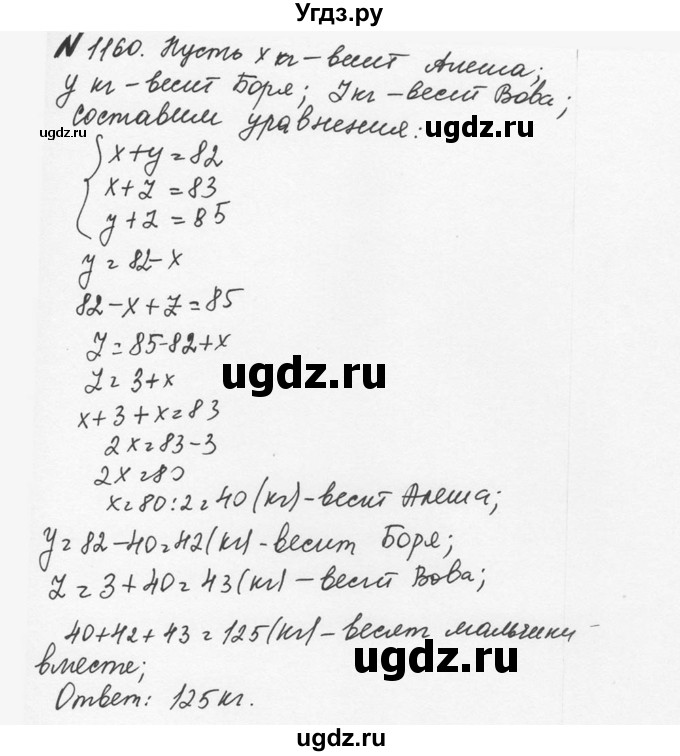 Угдз.ру
№ 1160. Пусть x кг – весит Алеша;
y кг – весит Боря; Z кг – весит Вова;
составим уравнения:
ugdz.ru
ugdz.ru
x + y = 82
x + Z = 83
y + Z = 85
y = 82 - x
82 - x + Z = 85
Z = 85 - 82 + x
ugdz.ru
Z = 3 + x
x + 3 + x = 83
2x = 83 - 3
2x = 80
x = 80 : 2 = 40 (кг) - весит Алеша;
y = 82 - 40 = 42 (кг) - весит Боря;
Z = 3 + 40 = 43 (кг) – весит Вова;
40 + 42 + 43 = 125 (кг) – весят мальчики
вместе;
ugdz.ru
ugdz.ru
Ответ: 125 кг.
ugdz.ru